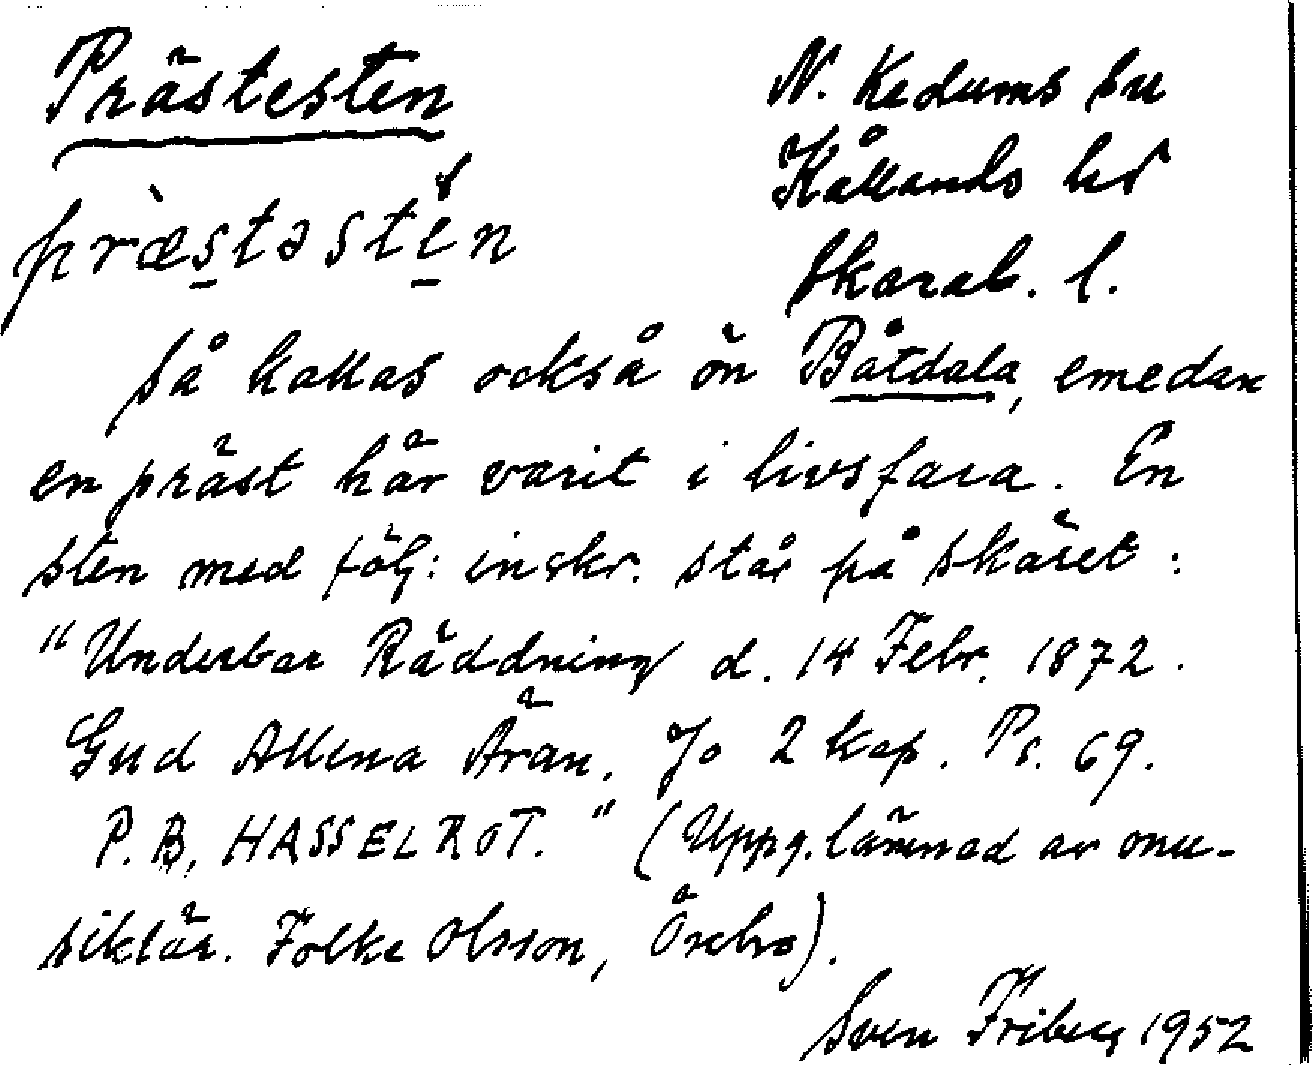 Prästesten
N. Kedums sn
Kållands hd
Skarab. l.
præstəstèn
Så kallas också ön Båtdala, emedan
en präst här varit i livsfara. En
sten med följ: inskr. står på skäret:
"Underbar Räddning d. 14 Febr. 1872.
Gud Allena Äran. Jo 2 kap. Ps. 69.
P. B. HASSELROT." (Uppg. lämnad av mu-
siklär. Folke Olsson, Örebro).
Sven Friberg 1952